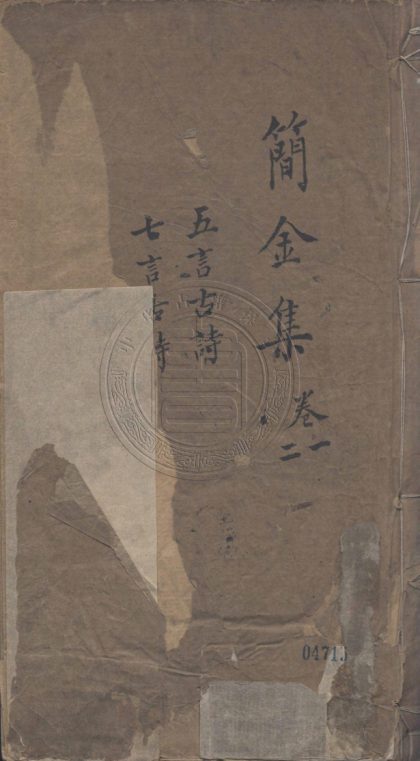 簡金集 卷一二
五言古詩
七言古詩
0471